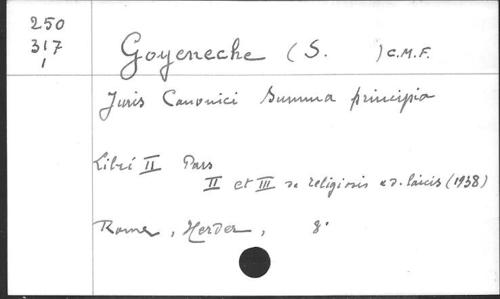 250
317
1
Goyeneche (S. ) C.M.F.
Juris Canonici Summa principia
Libri II Pars
II et III de religiosis & de laicis (1938)
Rome, Herder, 8°